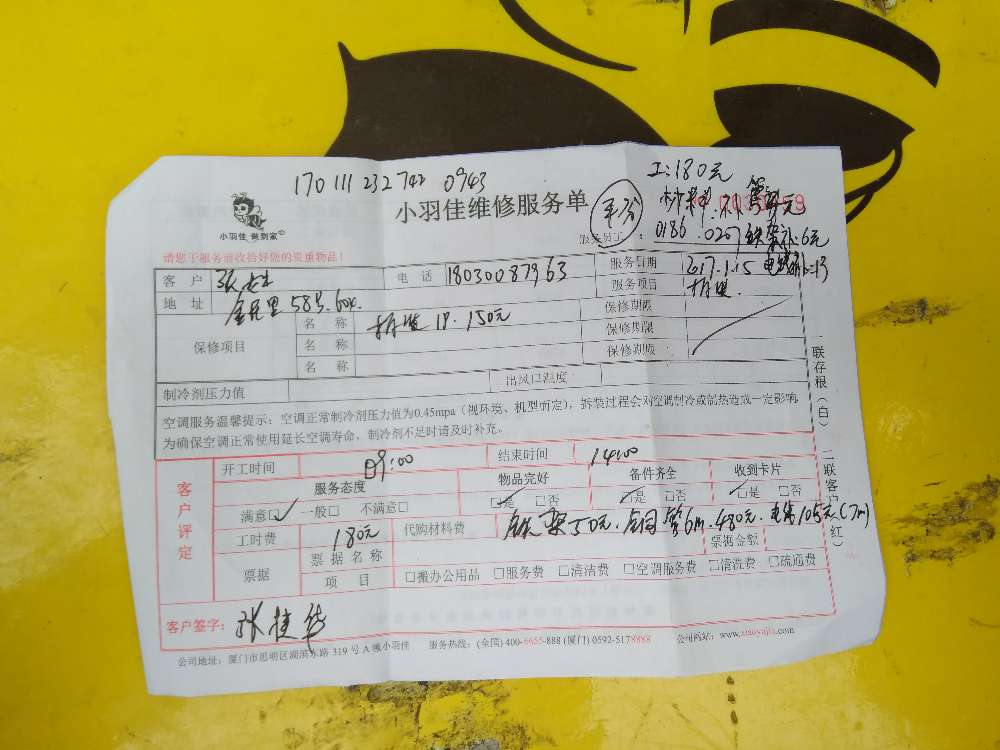 170 111 232 742 0943
工:180元
小羽佳维修服务单
平分
小羽佳 做到家
服务员工:
0186 0207
请您于服务前收拾好您的贵重物品!
客 户 张女士 电 话 18030087963 服务日期 2017.1.15
地 址 58号 服务项目
保修项目 名 称 150元 保修期限
名 称 保修期限
名 称 保修期限
制冷剂压力值 出风口温度
空调服务温馨提示:空调正常制冷剂压力值为0.45mpa(视环境、机型而定),拆装过程会对空调制冷或制热造成一定影响,
为确保空调正常使用延长空调寿命,制冷剂不足时请及时补充。
客户评定
开工时间 09:00 结束时间 14:00
服务态度 物品完好 备件齐全 收到卡片
满意□✓ 一般□ 不满意□ □是 □否 □是 □否 □是 □否
工时费 180元 代购材料费 铁架50元.铜管6m.480元.电线105元(7m)
票据 票据名称 票据金额
项 目 □搬办公用品 □服务费 □清洁费 □空调服务费 □清洗费 □疏通费
客户签字: 张桂华
公司地址:厦门市思明区湖滨东路319号A幢小羽佳 服务热线:(全国)400-6655-888 (厦门)0592-5178888 公司网站:www.xiaoyujia.com
一联存根(白)
二联客户(红)